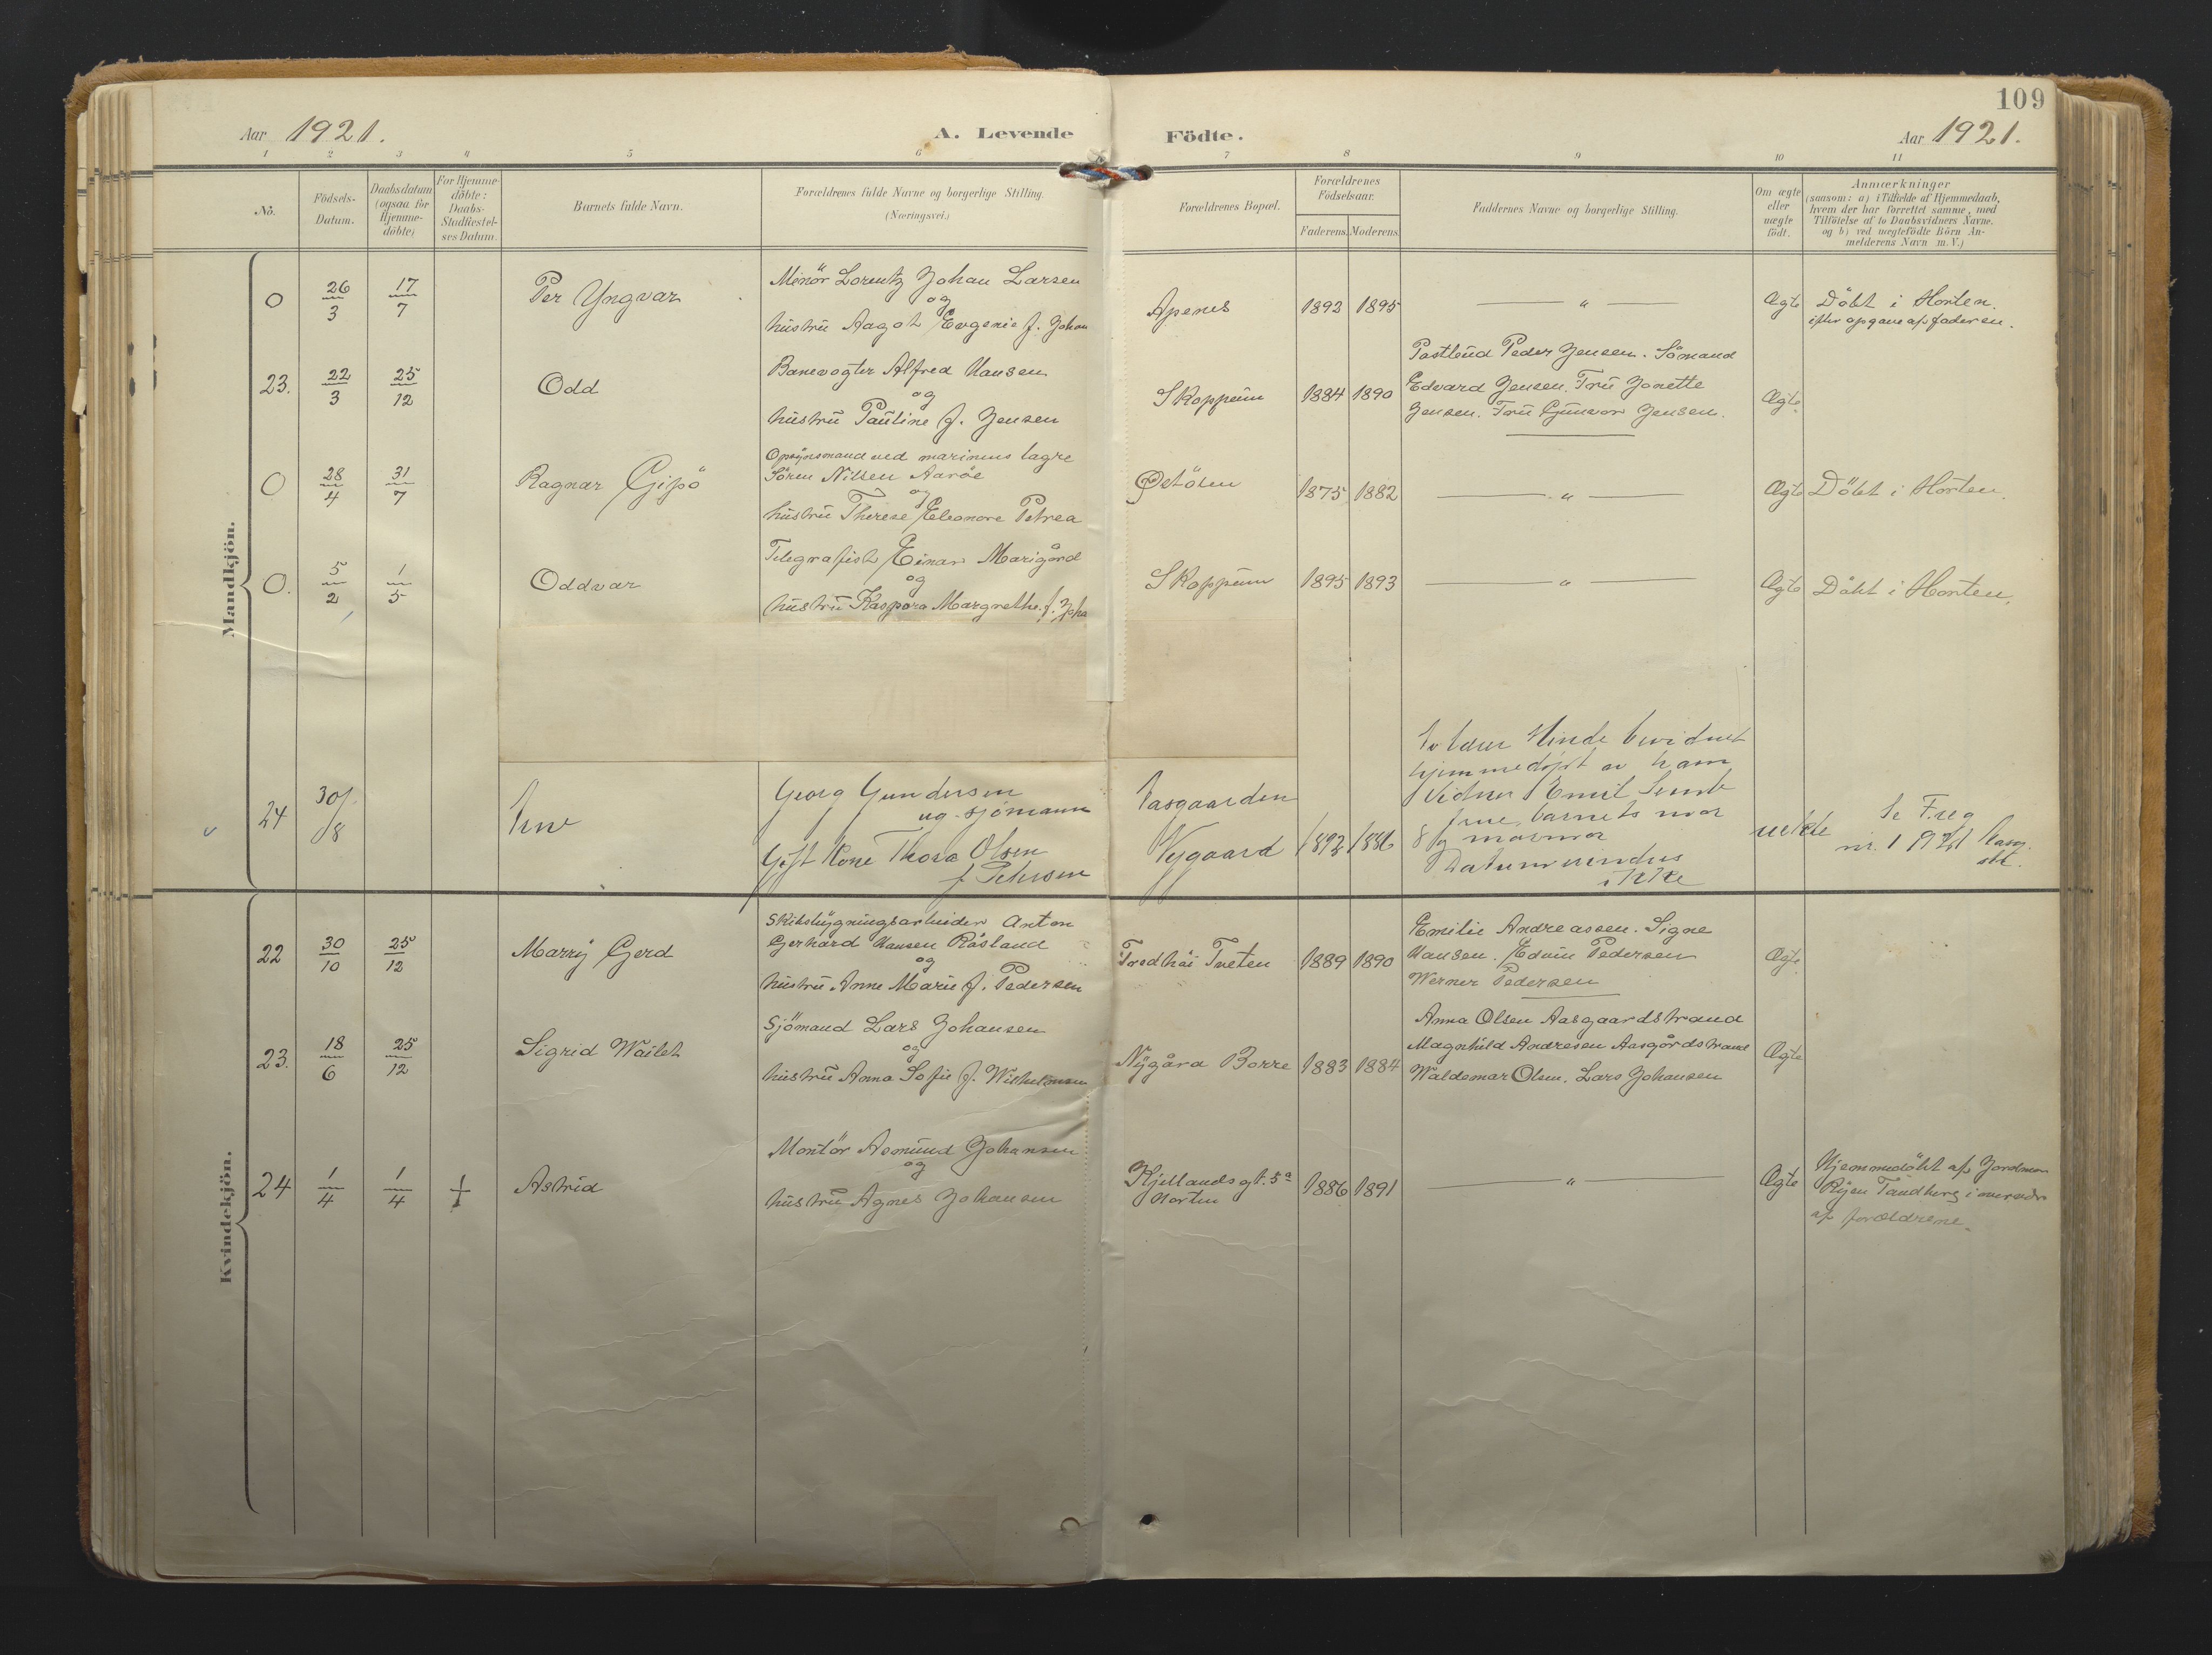 109
Aar 1921.
A. Levende Födte.
Aar 1921.
1 2 3 4 5 6 7 8 9 10 11
No.
Födsels-
Datum.
Daabsdatum
(ogsaa for
Hjemme-
döbte)
For Hjemme-
döbte:
Daabs-
Stadfæstel-
ses Datum.
Barnets fulde Navn.
Forældrenes fulde Navne og borgerlige Stilling.
(Næringsvei.)
Forældrenes Bopæl.
Forældrenes
Födselsaar.
Faderens. Moderens.
Faddernes Navne og borgerlige Stilling.
Om ægte
eller
uægte
födt.
Anmærkninger
(saasom: a) i Tilfælde af Hjemmedaab,
hvem der har forrettet samme, med
Tilföielse af to Daabsvidners Navne.
og b) ved uægtefödte Börn An-
melderens Navn m. V.)
Mandkjön.
0 26/3 17/7 Per Yngvar
Minör Lorentz Johan Larsen
og
hustru Aagot Eugenie f. Johan
Apenes 1892 1895 — " — Ægte
Döbt i Horten.
ifölge opgave af faderen.
23. 22/3 25/12 Odd
Banevogter Alfred Hansen
og
hustru Pauline f. Jensen
Skoppum 1884 1890
Postbud Peder Jensen. Sömand
Edvard Jensen. Fru Jonette
Jensen. Fru Gunvor Jensen.
Ægte
0 28/4 31/7 Ragnar Gisö
Opsynsmand ved marinens lagre
Sören Nilsen Aaröe
og
hustru Therese Eleonore Petrea
Östöen 1875 1882 — " — Ægte Döbt i Horten.
0. 5/2 1/5 Oddvar
Telegrafist Einar Marigård
og
hustru Kaspara Margrethe f. Joha
Skoppum 1895 1893 — " — Ægte Döbt i Horten.
24 30/8
Georg Gundersen
ug. sjömann
Gift Kone Thora Olsen
f Petersen
Aasgaarden
Nygaard 1892 1886
hjemmedöpt av ham
Vidner Emil
frue, barnets mor
og mormor
Datum
ikke
uekte
nr. 1 1921
Kvindekjön.
22 30/10 25/12 Marry Gerd
Skibsbygningsarbeider Anton
Gerhard Hansen Råsland
og
hustru Anne Marie f. Pedersen
Tveten 1889 1890
Emilie Andreassen. Signe
Hansen. Edvin Pedersen
Werner Pedersen
Ægte
23. 18/6 25/12 Sigrid Wailet
Sjömand Lars Johansen
og
hustru Anna Sofie f. Wilhelmsen
Nygåra Borre 1883 1884
Anna Olsen Aasgaardstrand
Magnhild Andresen Aasgårdstrand
Waldemar Olsen. Lars Johansen
Ægte
24 1/4 1/4 + Astrid
Montör Asmund Johansen
og
hustru Agnes Johansen
Kjellandsgt. 5a
Horten
1886 1891 — " — Ægte
Hjemmedöbt af Jordmor
Rijen Tandberg i nærvær
af forældrene.